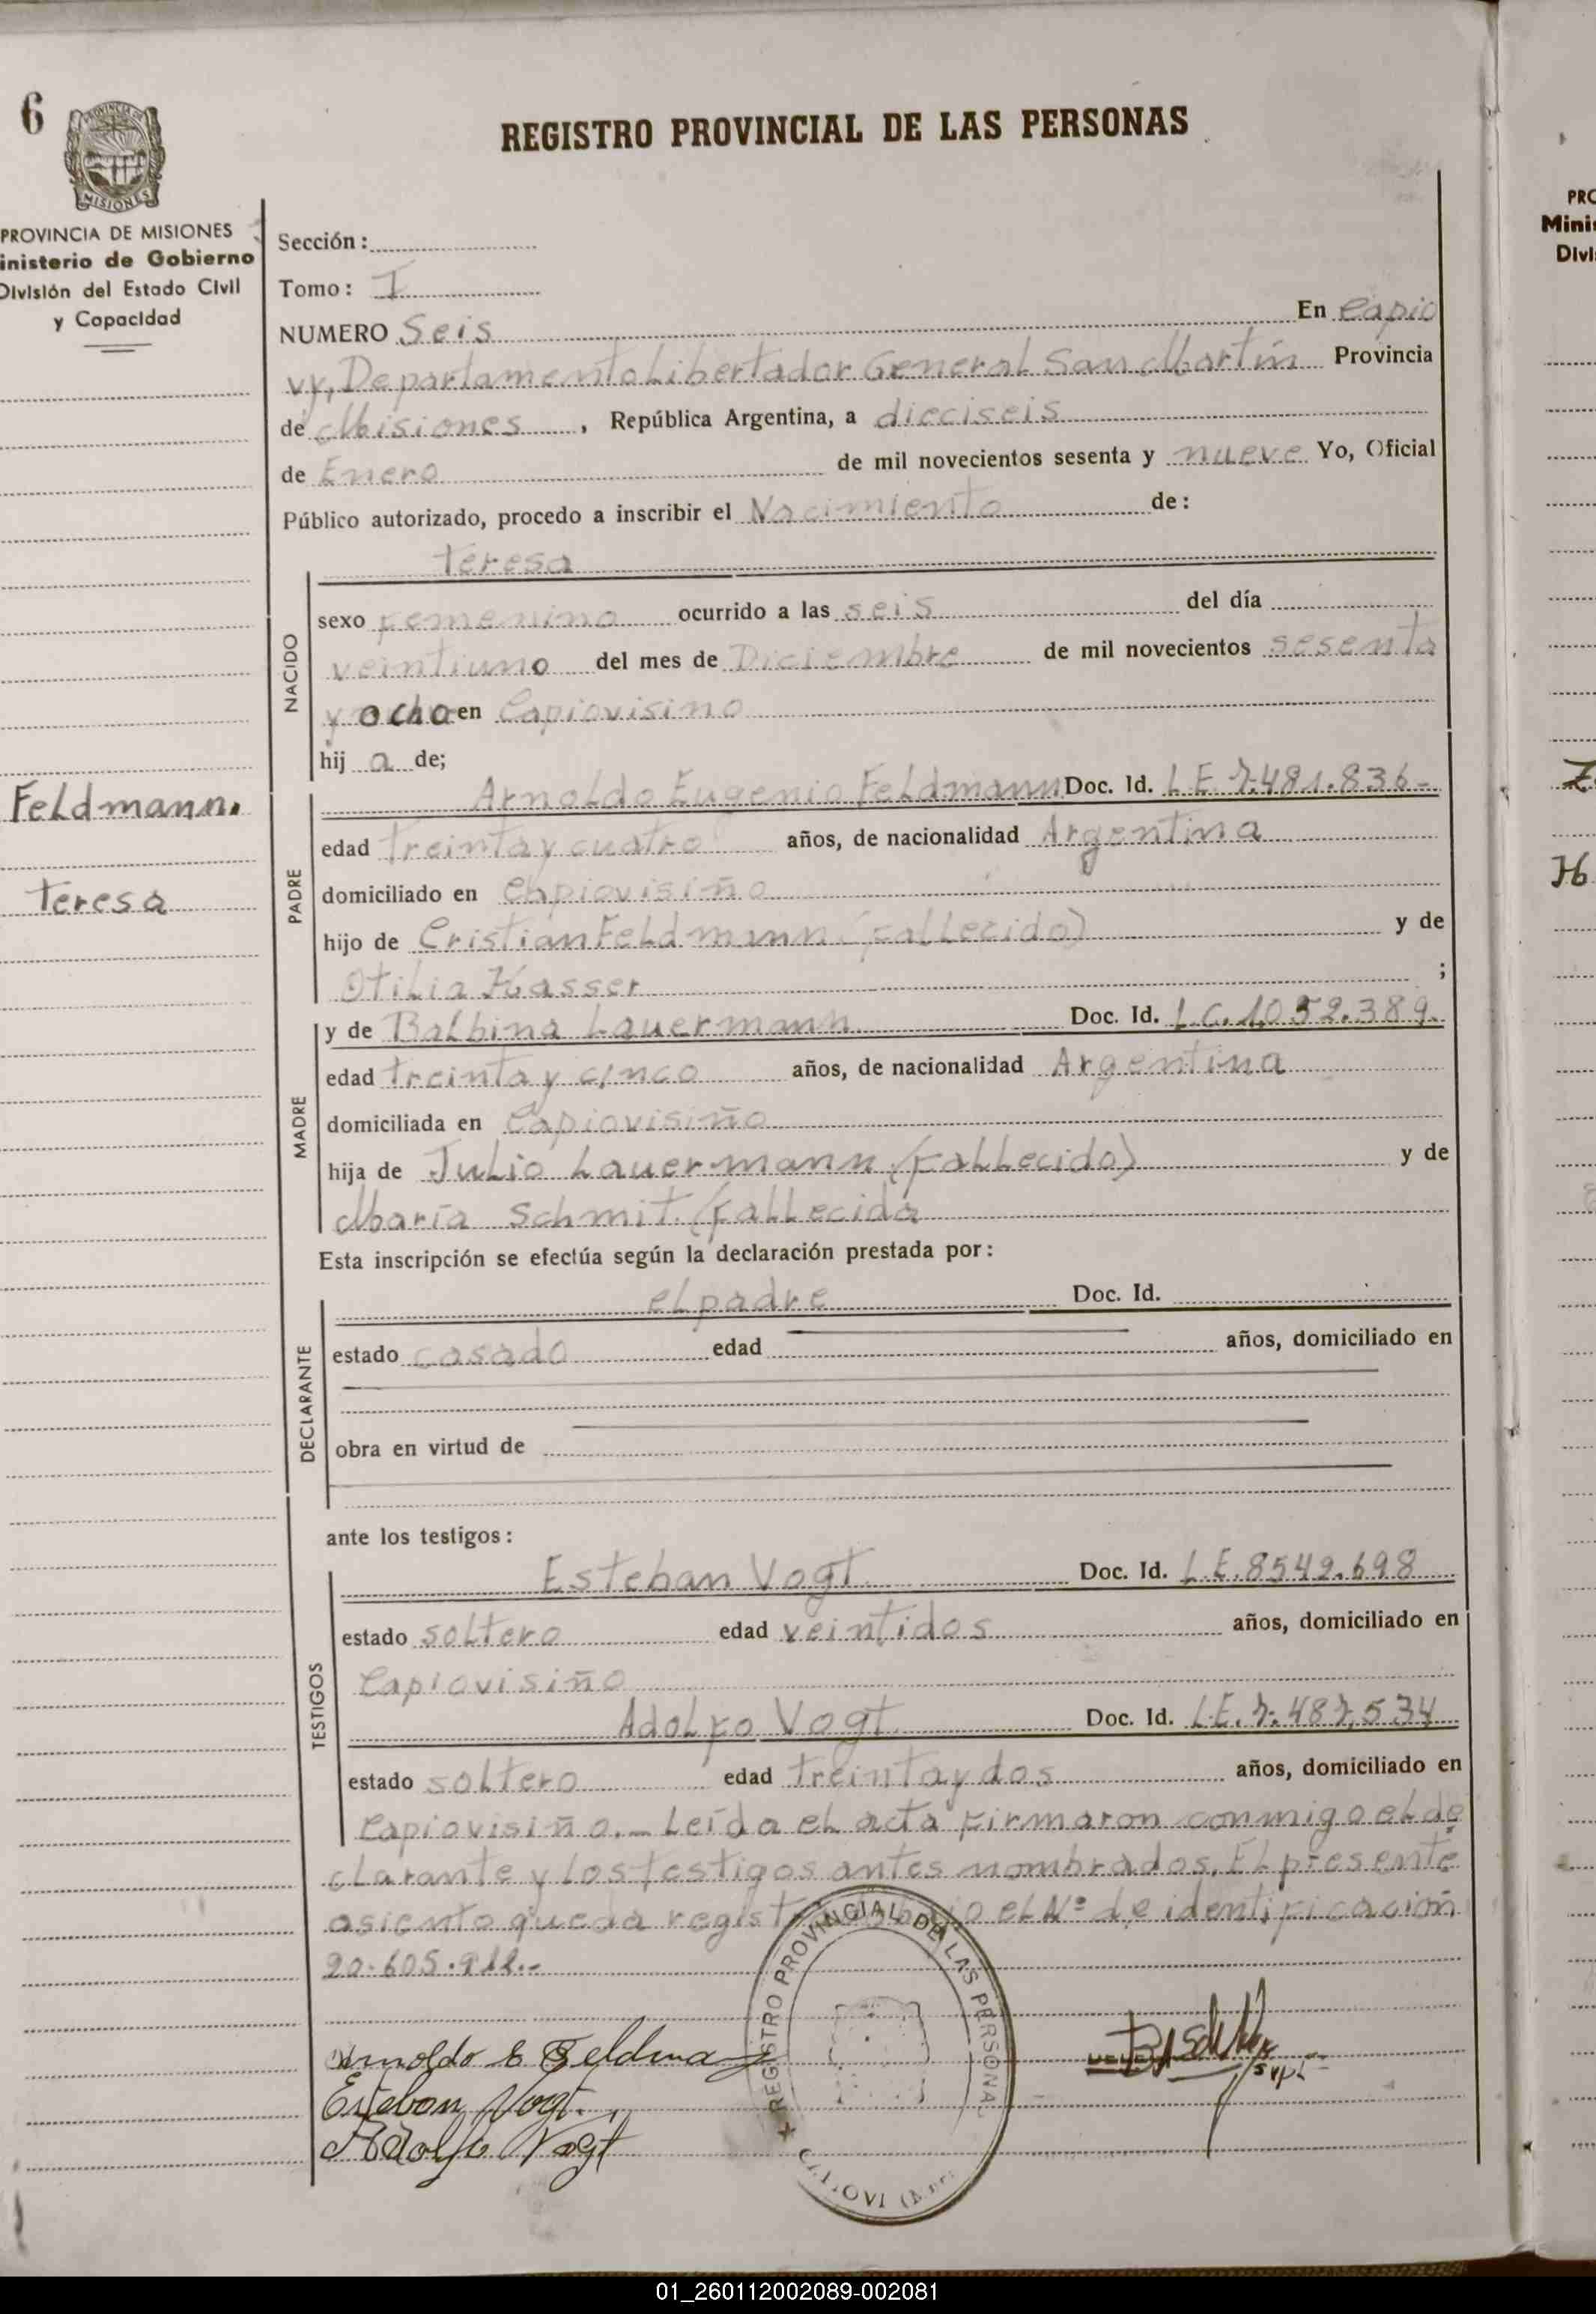 6
PROVINCIA DE MISIONES
REGISTRO PROVINCIAL DE LAS PERSONAS
PROVINCIA DE MISIONES
inisterio de Gobierno
División del Estado Civil
y Capacidad
Sección:
Tomo: I
NUMERO Seis En Capio
vy, Departamento Libertador General San Martín Provincia
de Misiones, República Argentina, a dieciseis
de Enero de mil novecientos sesenta y nueve Yo, Oficial
Público autorizado, procedo a inscribir el Nacimiento de:
Teresa
NACIDO
sexo femenino ocurrido a las seis del día
veintiuno del mes de Diciembre de mil novecientos sesenta
y ocho en Capiovisino
hij a de;
Feldmann.
Teresa
PADRE
Arnoldo Eugenio Feldmann Doc. Id. L E 7.481.836-
edad treinta y cuatro años, de nacionalidad Argentina
domiciliado en Capiovisiño
hijo de Cristian Feldmann (fallecido) y de
Otilia Hasser ;
MADRE
y de Balbina Lauermann Doc. Id. L.C. 1.052.389.
edad treinta y cinco años, de nacionalidad Argentina
domiciliada en Capiovisiño
hija de Julio Lauermann (fallecido) y de
María Schmit. (fallecida
Esta inscripción se efectúa según la declaración prestada por:
DECLARANTE
el padre Doc. Id.
estado casado edad años, domiciliado en
obra en virtud de
ante los testigos:
TESTIGOS
Esteban Vogt Doc. Id. L.E. 8549.698
estado soltero edad veintidos años, domiciliado en
Capiovisiño
Adolfo Vogt Doc. Id. L.E. 7.487.534
estado soltero edad treinta y dos años, domiciliado en
Capiovisiño.- Leída el acta firmaron conmigo el de
clarante y los testigos antes nombrados. El presente
asiento queda regist bajo el Nº de identificación
20.605.911.-
Arnoldo E Feldmann
Esteban Vogt.
Adolfo Vogt
REGISTRO PROVINCIAL DE LAS PERSONAS
supl
PRO
Minis
Divi
H
01_260112002089-002081